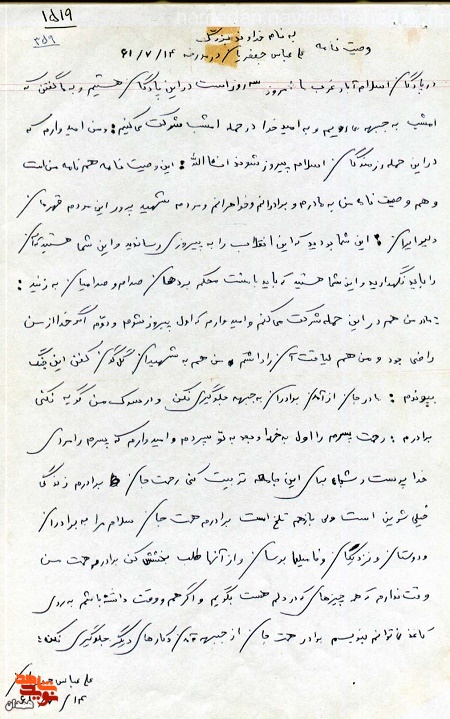 ۱۵۱۹
۳۵۹
به نام خداوند بزرگ
وصیت نامه علی عباس جعفریان در مدرنت ۶۱/۷/۱۴
در پادگان اسلام آباد غرب با امروز سه روز است در این پادگان هستیم و به ما گفتن که
امشب به جبهه می رویم و به امید خدا در حمله امشب شرکت می کنیم و من امیدوارم که
در این حمله رزمندگان اسلام پیروز شوند انشاالله این وصیت نامه هم نامه من است
و هم وصیت نامه من به مادرم و برادرانم و خواهرانم و مردم شهید پرور این مردم قهرمان
دلیر ایران این شما بودید که این انقلاب را به پیروزی رساندید و این شما هستید که آن
را باید نگهدارید و این شما هستید که باید با مشت محکم بر دهان صدام و صدامیان به زنید
مادر من هم در این حمله شرکت می کنم و امیدوارم که اول پیروز شوم و دوم اگر خدا از من
راضی بود و من هم لیاقت آن را داشتم من هم به شهیدان گلگون کفن این جنگ
بپیوندم مادر جان از آمدن برادران به جبهه جلوگیری نکن و در مرگ من گریه نکنی
برادرم رحمت پسرم را اول به خدا و بعد به تو سپردم و امیدوارم که پسرم را مردی
خدا پرست و شجاع برای این جامعه تربیت کنی رحمت جان برادرم زندگی
خیلی شیرین است ولی بازهم تلخ است برادرم رحمت جان سلام مرا به برادران
و دوستان و نزدیکان و فامیلها برسان و از آنها طلب بخشش کن برادرم رحمت من
وقت ندارم که همه چیزهای که در دلم هست بگویم و اگر هم وقت داشته باشم به روی
کاغذ نمی توانم بنویسم برادر رحمت جان از جبهه آمدن و کارهای دیگر جلوگیری نکن
علی عباس جعفریان